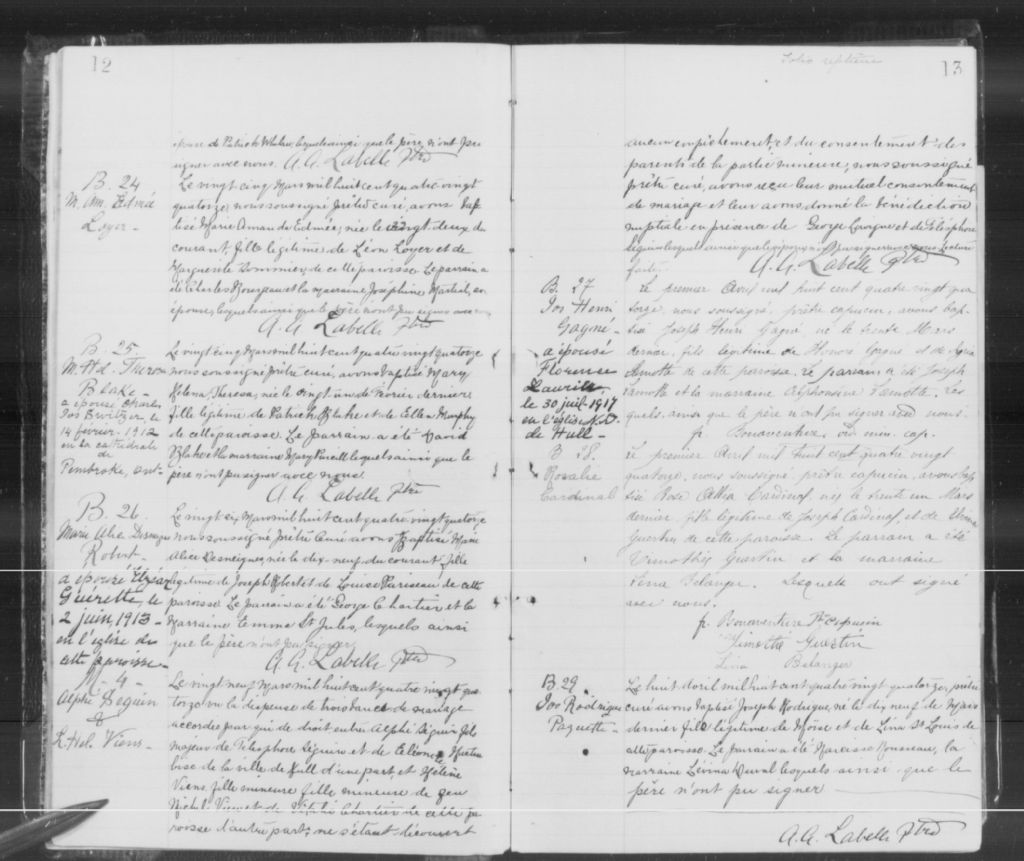 12
épouse de Patrick Whelan, lesquels ainsi que le père, n'ont pu
signer avec nous. A. A. Labelle Ptre
B. 24
M. Am. Edmée
Loyer
Le vingt cinq Mars mil huit cent quatre vingt
quatorze, nous soussigné prêtre curé, avons bap
tisé Marie Amanda Edmée, née le vingt deux du
courant, fille légitime de Léon Loyer et de
Marguerite de cette paroisse. Le parrain a
été Charles Bourgeau et la marraine Joséphine Martel, son
épouse, lesquels ainsi que le père n'ont pu signer avec nous
A. A. Labelle Ptre
B. 25
M. Hel. Theresa
Blake
a épousé Charles
Jos Switzer le
14 février 1912
en la cathédrale
de
Pembroke, ont.
Le vingt cinq Mars mil huit cent quatre vingt quatorze
nous soussigné prêtre curé, avons baptisé Mary
Helena Theresa, née le vingt un de Février dernier
fille légitime de Patrick Blake et de Ellen Murphy
de cette paroisse. Le parrain a été David
Blake et la marraine Mary Powell lesquels ainsi que le
père n'ont pu signer avec nous
A. A. Labelle Ptre
B. 26
Marie Alice
Robert
a épousé Elzéar
Guérette, le
2 juin, 1913
en l'église de
cette paroisse
Le vingt six Mars mil huit cent quatre vingt quatorze
nous soussigné prêtre curé avons baptisé Marie
Alice née le dix-neuf du courant fille
légitime de Joseph Robert et de Louise Pariseau de cette
paroisse Le parrain a été George Chartier et la
marraine femme St Jules, lesquels ainsi
que le père n'ont pu signer
A. A. Labelle Ptre
M - 4
Alphé Seguin
&
R. Hel. Viens
Le vingt neuf Mars mil huit cent quatre vingt qua
torze, vu la dispense de trois bans de mariage
accordée par qui de droit entre Alphé Séguin fils
majeur de Télesphore Séguin et de
de la ville de Hull d'une part, et Hélène
Viens, fille mineure fille mineure de feu
Michel Viens et de Chartier de cette pa
roisse d'autre part; ne s'étant découvert
Folio septième
13
aucun empêchement, et du consentement des
parents de la partie mineure, nous soussigné
prêtre curé, avons reçu leur mutuel consentement
de mariage et leur avons donné la bénédiction
nuptiale en présence de George et de Télesphore
Séguin lesquels ainsi que les époux n' signer avec nous. Lecture
faite.
A. A. Labelle Ptre
B. 27
Jos Henri
Gagné
a épousé
Florence
Laurin
le 30 juil. 1917
en l'église N.D.
de Hull
Le premier Avril mil huit cent quatre vingt qua
torze, nous soussigné, prêtre capucin, avons bap
tisé Joseph Henri Gagné, né le trente Mars
dernier, fils légitime de Honoré Gagné et de
Lamotte de cette paroisse. Le parrain a été Joseph
Lamotte et la marraine Alphonsine Lamotte. Les
quels, ainsi que le père n'ont pu signer avec nous.
fr. Bonaventure, min. cap.
B 28
Rosalie
Cardinal
Le premier Avril mil huit cent quatre vingt
quatorze, nous soussigné, prêtre capucin, avons bap
tisé Rose Cardinal, née le trente un Mars
dernier, fille légitime de Joseph Cardinal et de
Guertin de cette paroisse. Le parrain a été
Timothée Guertin et la marraine
Lina Bélanger. Lesquels ont signé
avec nous.
fr. Bonaventure Ptre Capucin
Timothé Guertin
Lina Belanger
B. 29
Jos Rodrigue
Paquette
Le huit Avril mil huit cent quatre vingt quatorze, prêtre
curé avons baptisé Joseph Rodrigue, né le dix neuf de Mars
dernier fils légitime de Moïse et de Lina St Louis de
cette paroisse. Le parrain a été Narcisse Rousseau, la
marraine Lévina Duval lesquels ainsi que le
père n'ont pu signer
A. A. Labelle Ptre